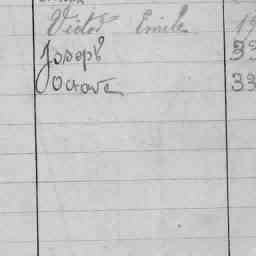 Victor Emile 19
Joseph 33
Octave 33